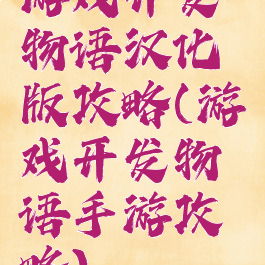 游戏开发
物语汉化
版攻略(游
戏开发物
语手游攻
略)